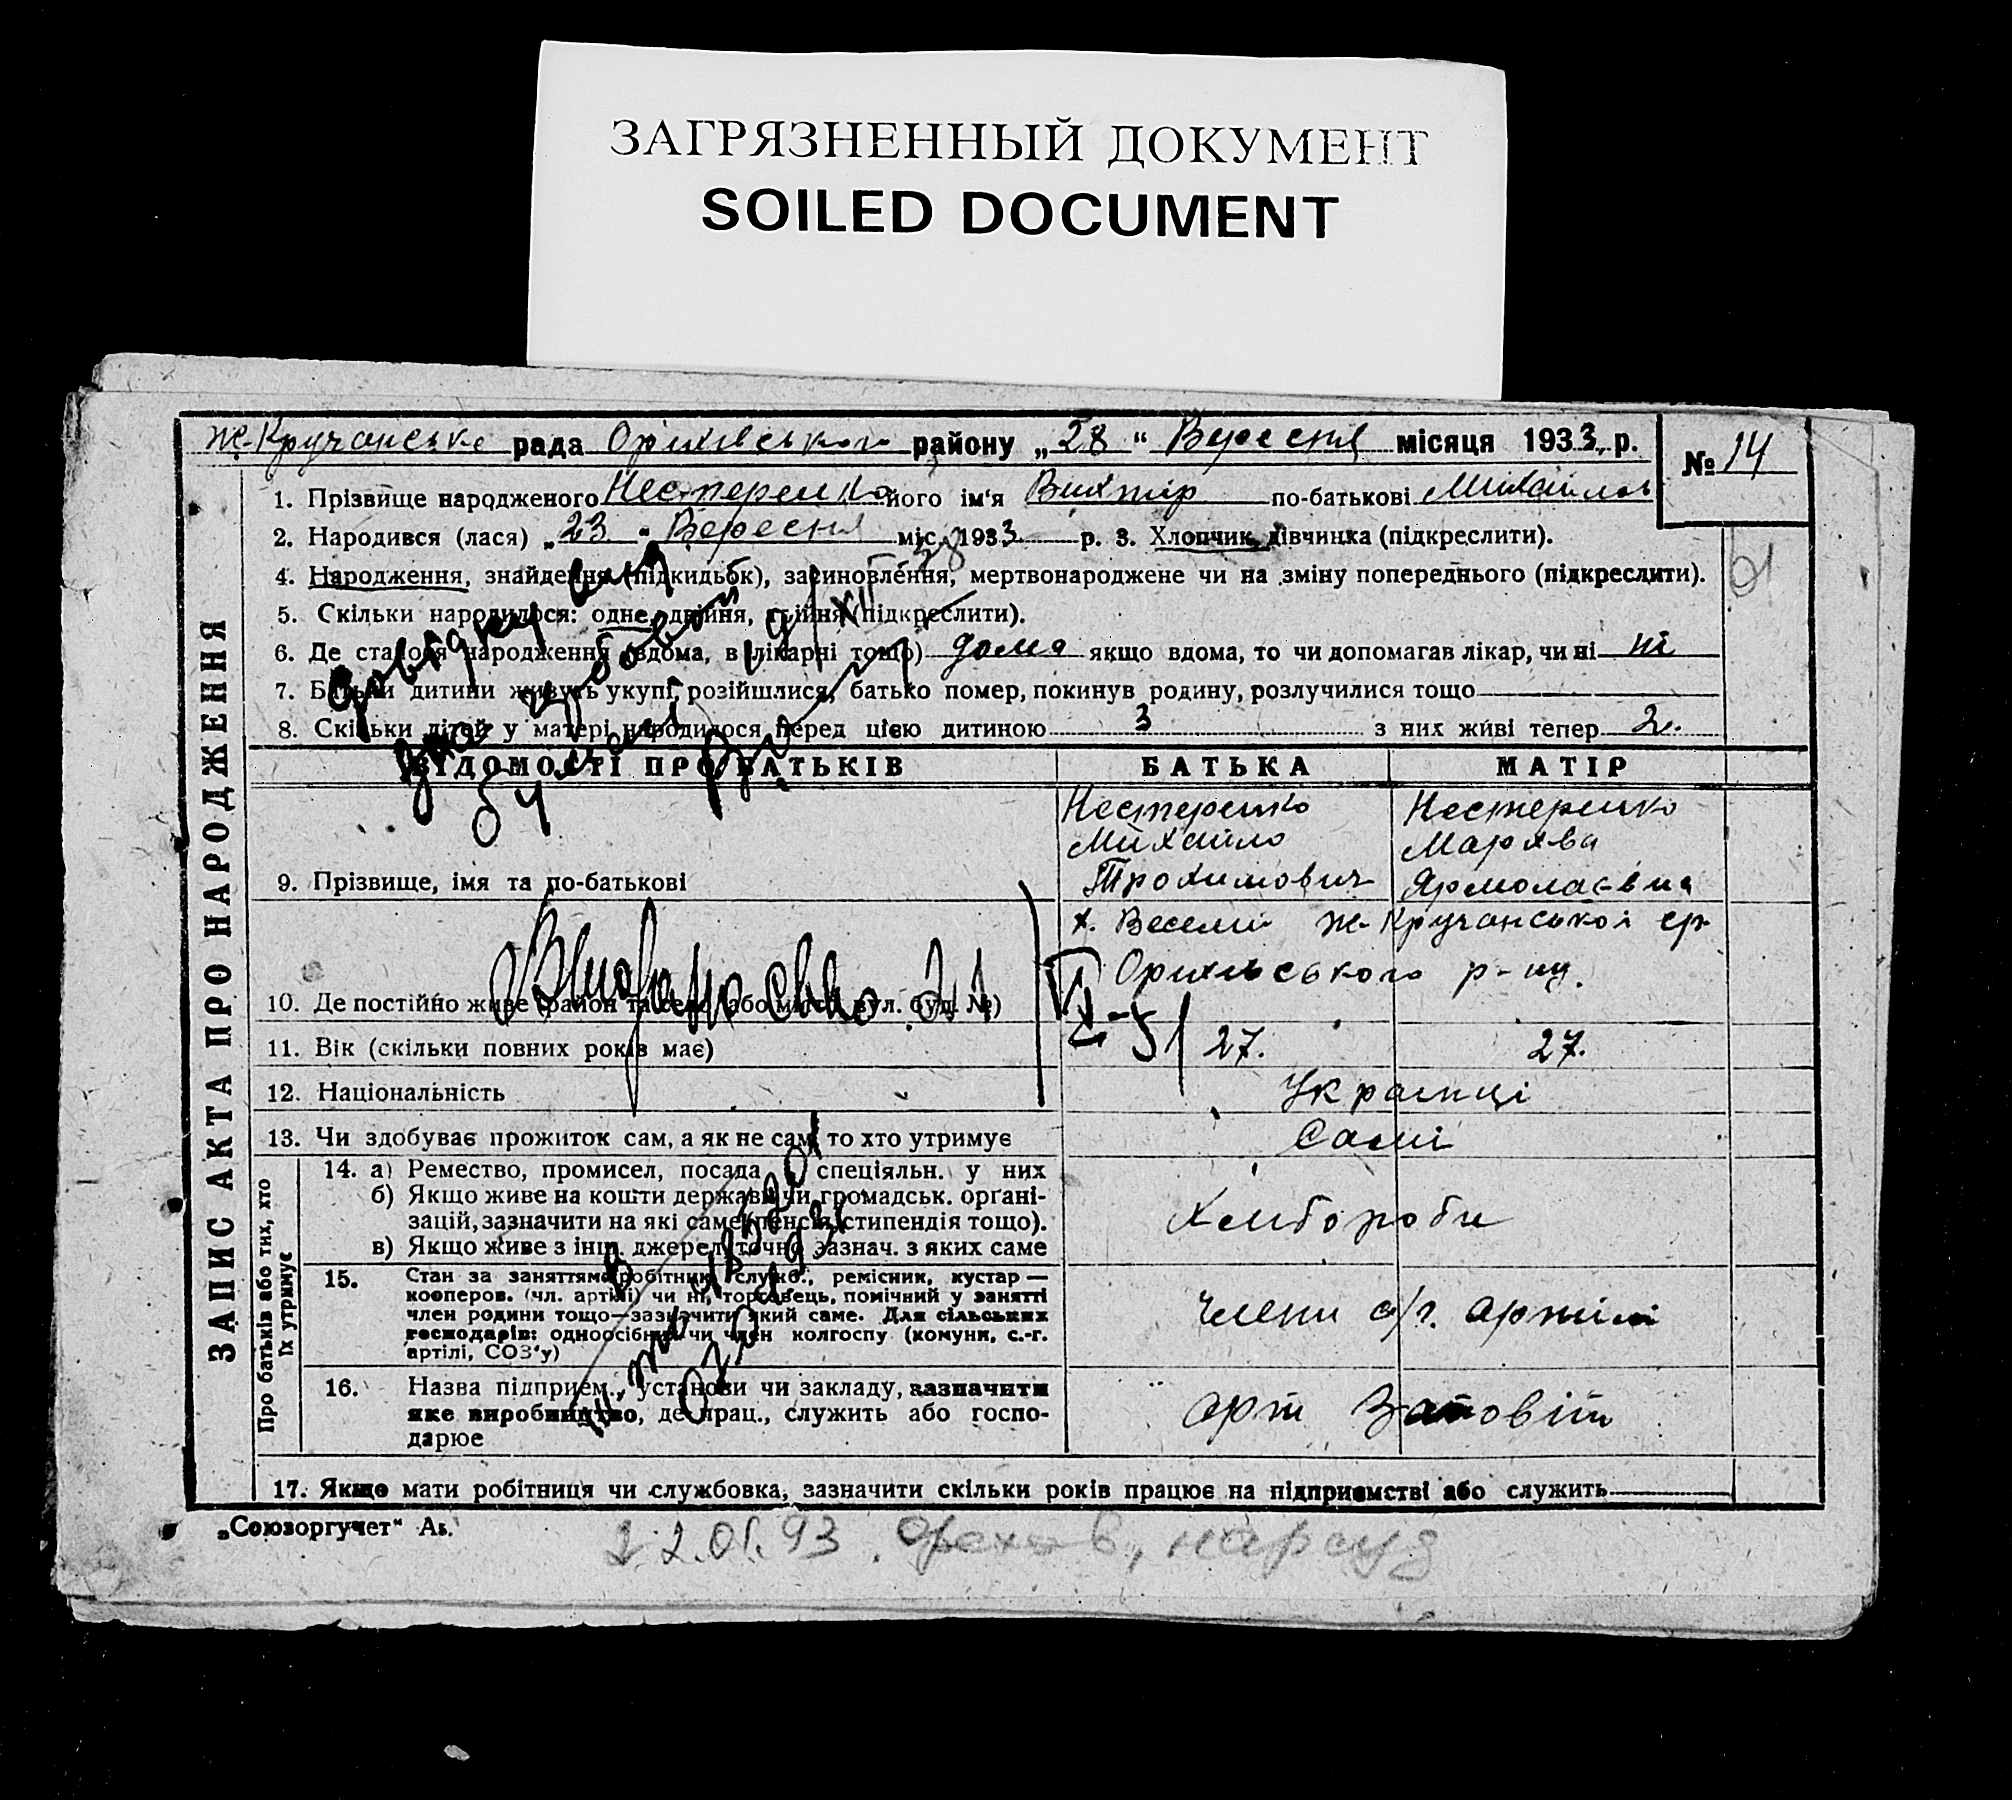 ЗАГРЯЗНЕННЫЙ ДОКУМЕНТ
SOILED DOCUMENT
Ж-Кручанська рада Оріхівського району „28“ Вересня місяця 1933 р. № 14
1. Прізвище народженого Нестеренко його ім'я Вихтір по-батькові Михайлов
2. Народився (лася) „23“ Вересня міс. 1933 р. 3. Хлопчик, дівчинка (підкреслити).
4. Народження, знайдення (підкидьок), засиновлення, мертвонароджене чи на зміну попереднього (підкреслити).
5. Скільки народилося: одне, двійня, трійня (підкреслити).
6. Де сталося народження (вдома, в лікарні тощо) дома якщо вдома, то чи допомагав лікар, чи ні ні
7. Батьки дитини живуть укупі, розійшлися, батько помер, покинув родину, розлучилися тощо
8. Скільки дітей у матері народилося перед цією дитиною 3 з них живі тепер 2.
ВІДОМОСТІ ПРО БАТЬКІВ БАТЬКА МАТІР
Нестеренко Нестеренко
Михайло Мархва
9. Прізвище, імя та по-батькові Трохимович Ярмолаєвна
х. Веселий Ж-Кручанської ср
Оріхівського р-ну.
10. Де постійно живе (район та село, або місто, вул. буд. №)
11. Вік (скільки повних років має) 27. 27.
12. Національність Українці
13. Чи здобуває прожиток сам, а як не сам, то хто утримує Самі
14. а) Ремество, промисел, посада і спеціяльн. у них
б) Якщо живе на кошти держави чи громадськ. орґані-
зацій, зазначити на які саме (пенсія, стипендія тощо).
в) Якщо живе з інш. джерел, точно зазнач. з яких саме
Хлібороби
15. Стан за заняттям: робітник, служб., ремісник, кустар —
кооперов. (чл. артілі) чи ні, торговець, помічний у занятті
член родини тощо—зазначити який саме. Для сільських
господарів: одноосібник чи член колгоспу (комуни, с.-г.
артілі, СОЗ'у)
члени с/г. артілі
16. Назва підприєм., установи чи закладу, зазначити
яке виробництво, де прац., служить або госпо-
дарює
арт Заповіт
17. Якщо мати робітниця чи службовка, зазначити скільки років працює на підприємстві або служить
ЗАПИС АКТА ПРО НАРОДЖЕННЯ
Про батьків або тих, хто
їх утримує
„Союзоргучет“ Ав.
22.01.93. Орехов, нарсуд